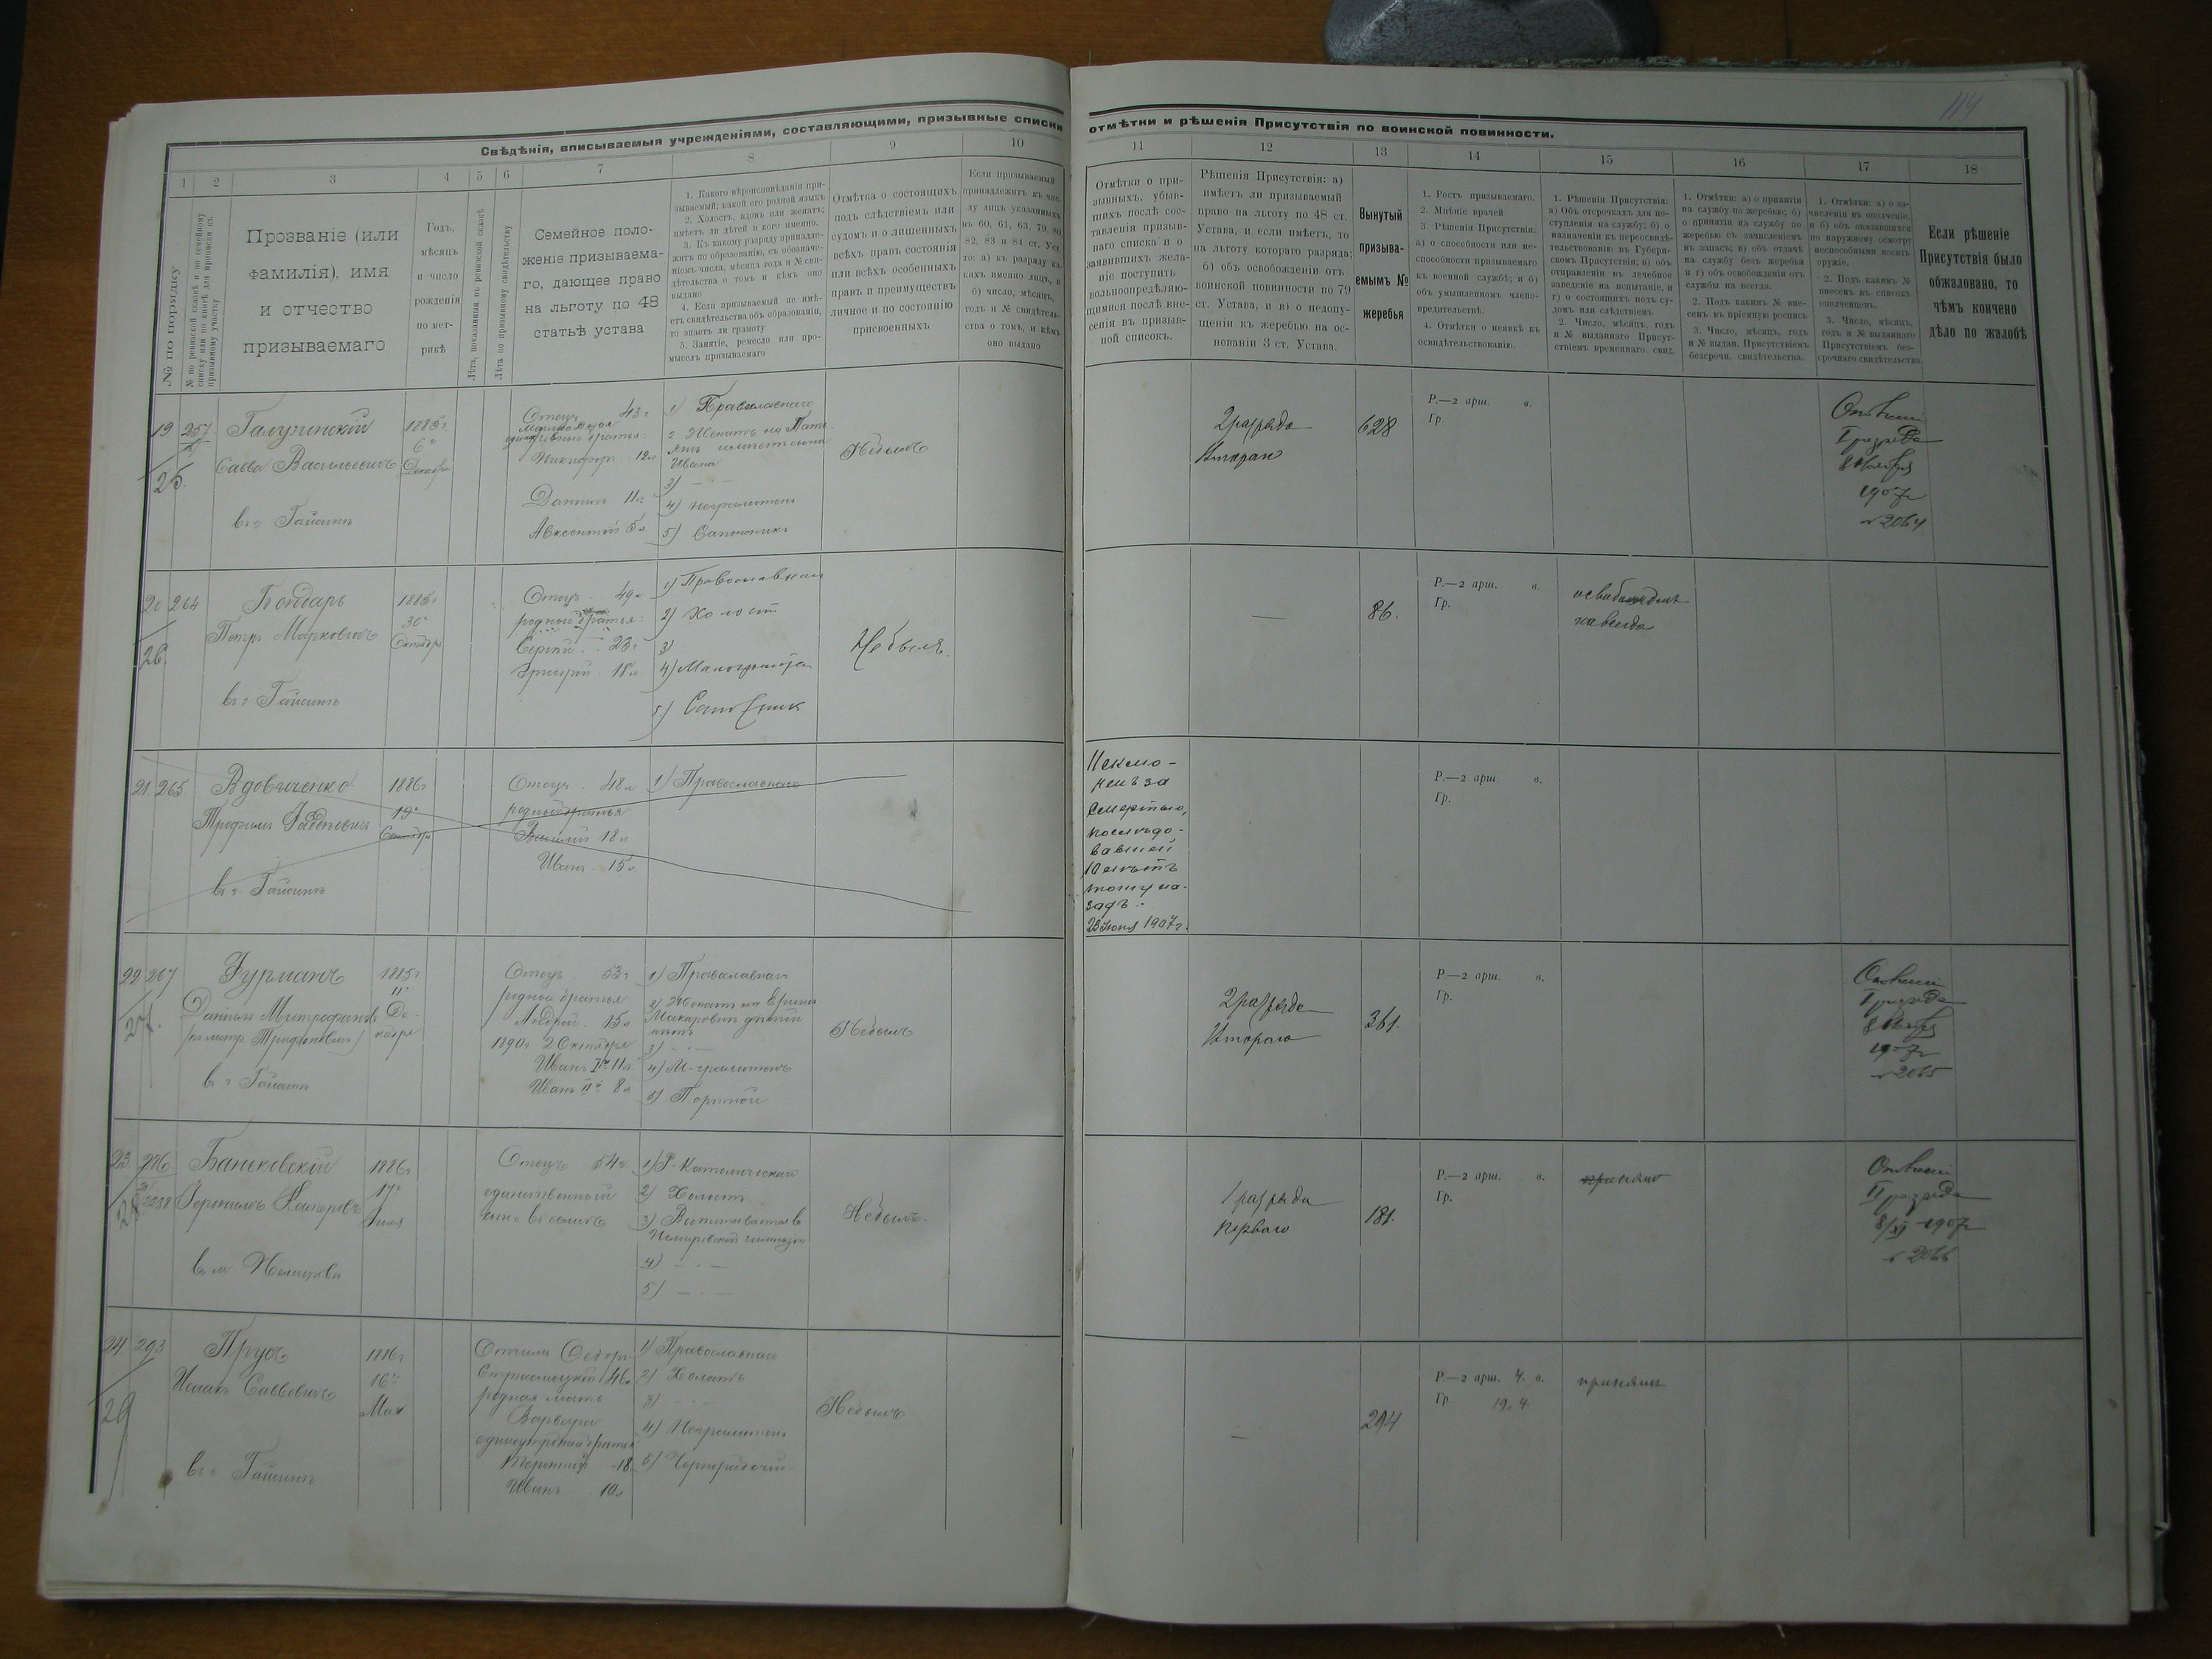 114
Свѣдѣнія, вписываемыя учрежденіями, составляющими, призывные списки
отмѣтки и рѣшенія Присутствія по воинской повинности.
1 2 3 4 5 6 7 8 9 10
11 12 13 14 15 16 17 18
№ по порядку
№ по ревизской сказкѣ и по семейному
списку или по книгѣ для приписки къ
призывному участку
Прозваніе (или
фамилія), имя
и отчество
призываемаго
Годъ,
мѣсяцъ
и число
рожденія
по мет-
рикѣ
Лѣта, показанныя въ ревизской сказкѣ
Лѣта по призывному свидѣтельству
Семейное поло-
женіе призываема-
го, дающее право
на льготу по 48
статьѣ устава
1. Какого вѣроисповѣданія при-
зываемый; какой его родной языкъ
2. Холостъ, вдовъ или женатъ;
имѣетъ ли дѣтей и кого именно.
3. Къ какому разряду принадле-
житъ по образованію, съ обозначе-
ніемъ числа, мѣсяца года и № сви-
дѣтельства о томъ и кѣмъ оно
выдано
4. Если призываемый не имѣ-
етъ свидѣтельства объ образованіи,
то знаетъ ли грамоту
5. Занятіе, ремесло или про-
мыселъ призываемаго
Отмѣтка о состоящихъ
подъ слѣдствіемъ или
судомъ и о лишенныхъ
всѣхъ правъ состоянія
или всѣхъ особенныхъ
правъ и преимуществъ
личное и по состоянію
присвоенныхъ
Если призываемый
принадлежитъ къ чис-
лу лицъ указанныхъ
въ 60, 61, 63, 79, 80,
82, 83 и 84 ст. Уст.
то: а) къ разряду ка-
кихъ именно лицъ, и
б) число, мѣсяцъ,
годъ и № свидѣтель-
ства о томъ, и кѣмъ
оно выдано
Отмѣтки о при-
зывныхъ, убыв-
шихъ послѣ сос-
тавленія призыв-
наго списка и о
заявившихъ жела-
ніе поступить
вольноопредѣляю-
щимися послѣ вне-
сенія въ призыв-
ной списокъ.
Рѣшенія Присутствія: а)
имѣетъ ли призываемый
право на льготу по 48 ст.
Устава, и если имѣетъ, то
на льготу котораго разряда;
б) объ освобожденіи отъ
воинской повинности по 79
ст. Устава, и в) о недопу-
щеніи къ жеребью на ос-
нованіи 3 ст. Устава.
Вынутый
призыва-
емымъ №
жеребья
1. Ростъ призываемаго.
2. Мнѣніе врачей
3. Рѣшенія Присутствія:
а) о способности или не-
способности призываемаго
къ военной службѣ; и б)
объ умышленномъ члено-
вредительствѣ.
4. Отмѣтки о неявкѣ къ
освидѣтельствованію.
1. Рѣшенія Присутствія:
а) Объ отсрочкахъ для по-
ступленія на службу; б) о
назначеніи къ переосвидѣ-
тельствованію въ Губерн-
скомъ Присутствіи; в) объ
отправленіи въ лечебное
заведеніе на испытаніе, и
г) о состоящихъ подъ су-
домъ или слѣдствіемъ
2. Число, мѣсяцъ, годъ
и № выданнаго Присут-
ствіемъ временнаго свид.
1. Отмѣтки: а) о принятіи
на службу по жеребью; б)
о принятіи на службу по
жеребью съ зачисленіемъ
въ запасъ; в) объ отдачѣ
на службу безъ жеребья
и г) объ освобожденіи отъ
службы на всегда.
2. Подъ какимъ № вне-
сенъ въ пріемную роспись
3. Число, мѣсяцъ, годъ
и № выдан. Присутствіемъ
безсрочн. свидѣтельства.
1. Отмѣтки: а) о за-
численіи въ ополченіе,
и б) объ оказавшихся
по наружному осмотру
неспособными носить
оружіе.
2. Подъ какимъ №
внесенъ въ списокъ
ополченцевъ.
3. Число, мѣсяцъ,
годъ и № выданнаго
Присутствіемъ без-
срочнаго свидѣтельства
Если рѣшеніе
Присутствія было
обжаловано, то
чѣмъ кончено
дѣло по жалобѣ
19
25.
Савва Васильевичъ
въ г. Гайсинѣ
1885 г.
6го
Декабря
Отецъ 43 г.
Никифоръ 12 л
Даніилъ 11 л
Авксентій 5 л
1) Православнаго
Ивана
3) — —
4) неграмотенъ
5) Сапожникъ
Небылъ
2 разряда
628
Р.—2 арш. в.
Гр.
1907 г
№ 2064
20 264
26.
Бондарь
Петръ Марковичъ
въ г. Гайсинѣ
1885 г
30го
Октября
Отецъ 49 л
родные братья:
Сергій 23 г
Григорій 18 л
1) Православнаго
2) Холостъ
3)
4) Малограмотен
5) Сапожник
Небылъ.
—
86.
Р.—2 арш. в.
Гр.
навсегда
21. 265
Вдовиченко
Трофимъ
въ г. Гайсинѣ
1886 г
19го
Сентября
Отецъ 48 л
родные братья
Василій 18 л
Иванъ 15 л
1) Православнаго
Исклю-
ченъ за
смертью,
послѣдо-
вавшей
10 лѣтъ
тому на-
задъ.-
23 Іюня 1907 г.
Р.—2 арш. в.
Гр.
22 267
27.
Фурманъ
Даніилъ Митрофановъ
/по метр. Трифоновичъ/
въ г. Гайсинѣ
1885 г
11го
Де-
кабря
Отецъ 53 г
родные братья
Андрей 15 л
1890 г. 2 Октября
Иванъ Iй 11 л.
Иванъ IIй 8 л
1) Православнаго
3) — · —
4) М-грамотенъ
5) Портной
Небылъ
2 разряда
Второго
361.
Р.—2 арш. в.
Гр.
I разряда
1907 г
№ 2065
23. 286
28
въ м. Немировѣ
1886 г
17го
Отецъ 54 г.
единственный
сынъ въ семьѣ
1) Р-Католическаго
2) Холостъ
3) Воспитывается въ
Немировской гимназіи
4) — · —
5) — · —
Небылъ.
1 разряда
перваго
181.
Р.—2 арш. в.
Гр.
принятъ
II разряда
8/XI 1907 г
№ 2066
24 293
29
Прусъ
Исаакъ Саввовичъ
въ г. Гайсинѣ
1886 г
16го
Мая
46 л
родная мать
Варвара
18
Иванъ 10 л
1) Православнаго
2) Холостъ
3) — · —
4) Неграмотенъ
5) Чернорабочій
Небылъ
—
294
Р.—2 арш. 4. в.
Гр. 19. 4.
принятъ